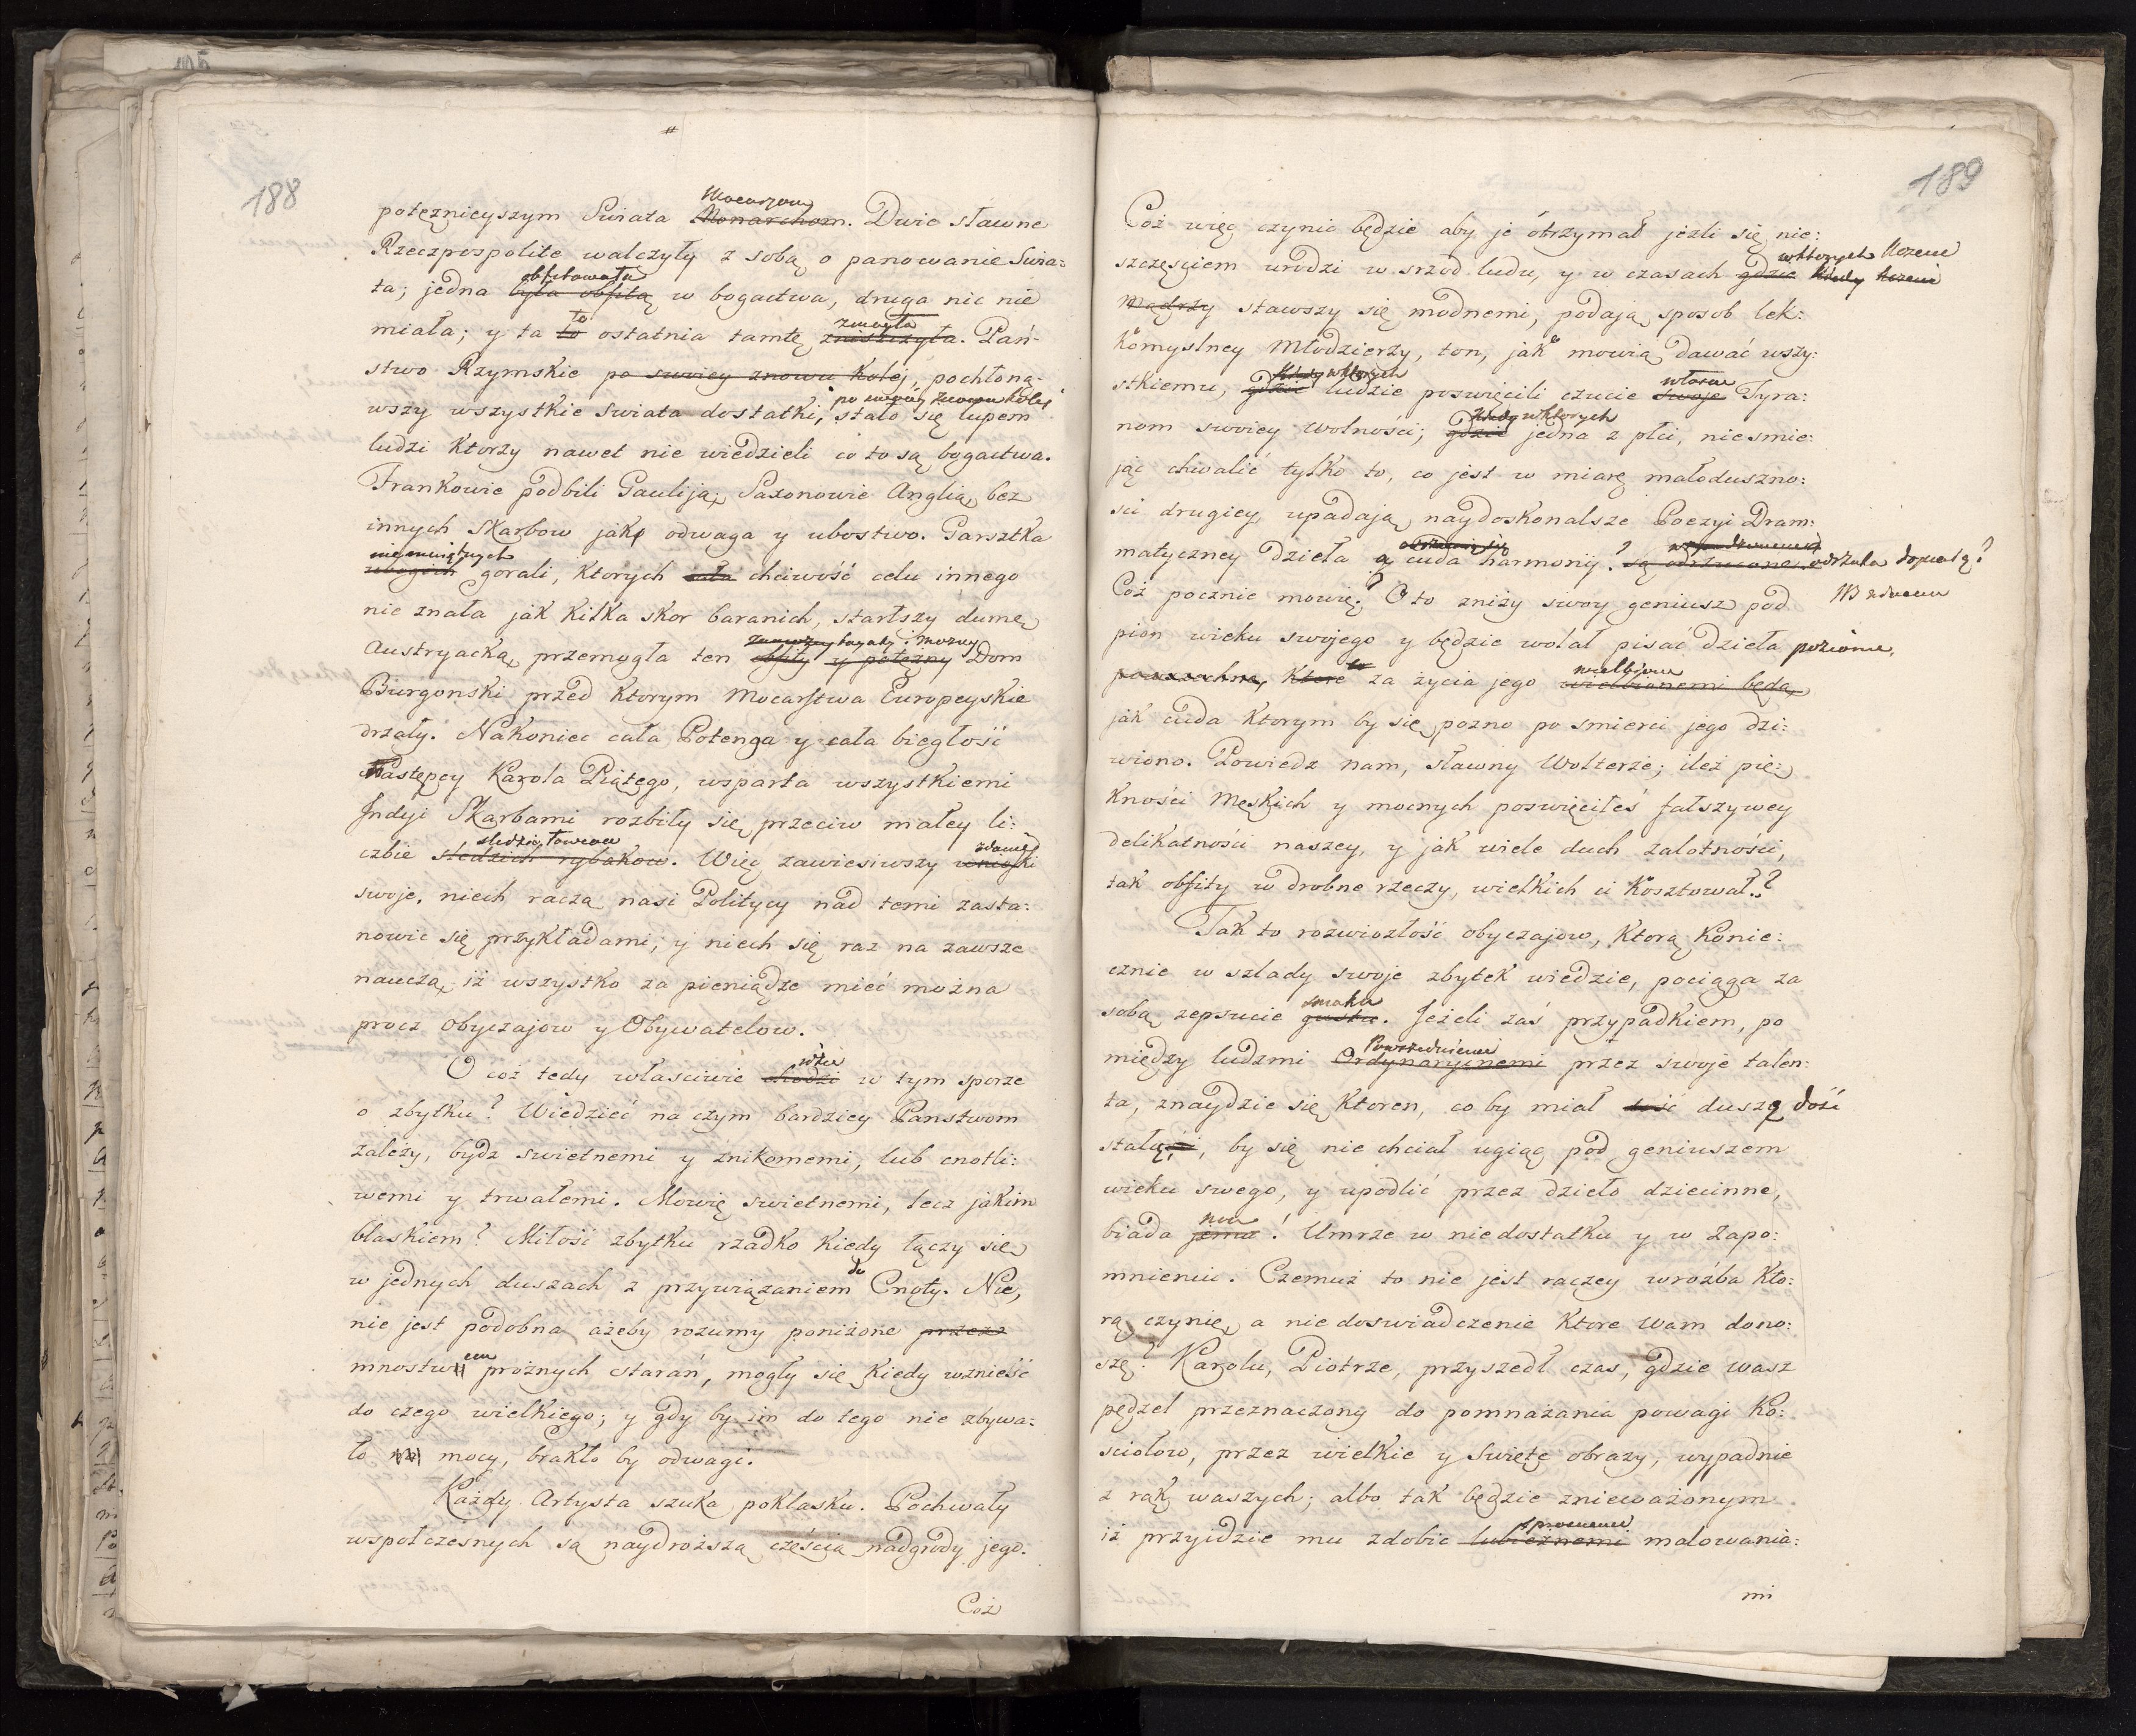 188
potężnieyszym Swiata Mocarzom Monarchom. Dwie sławne
Rzeczpospolite walczyły z sobą o panowanie Swia:
ta; jedna obfitowała była obfitą w bogactwa, druga nic nie
miała; y ta to to ostatnia tamtę zmogła zniszczyła. Pań-
stwo Rzymskie po swoiey znowu kolej, pochłoną-
wszy wszystkie swiata dostatki, po swoiey znowu kolej stało się łupem
ludzi ktorzy nawet nie wiedzieli co to są bogactwa.
Frankowie podbili Gauliją, Saxonowie Anglią, bez
innych Skarbow jak odwaga y ubostwo. Garsztka
niemaiętnych ubogich gorali, ktorych cała chciwość celu innego
nie znała jak kilka skor baranich, starłszy dumę
Austryacką, przemogła ten bogaty i mozny obfity y potężny Dom
Burgonski przed ktorym Mocarstwa Europeyskie
drzały. Nakoniec cała Potenga y cała biegłość
Następcy Karola Piątego, wsparta wszystkiemi
Indyi Skarbami rozbiły się przeciw małey li:
czbie śledzi łowcow śledzich rybakow. Więc zawiesiwszy zdania wnioski
swoje, niech raczą nasi Politycy nad temi zasta:
nowic się przykładami; y niech się raz na zawsze
nauczą, iż wszystko za pieniądze mieć można
procz Obyczajow y Obywatelow.
O coż tedy własciwie idzie chodzi w tym sporze
o zbytku? Wiedzieć na czym bardziey Panstwom
zależy, bydz swietnemi y znikomemi, lub cnotli:
wemi y trwałemi. Mowię swietnemi, lecz jakim
blaskiem? Miłość zbytku rzadko kiedy łączy się
w jednych duszach z przywiązaniem do Cnoty. Nie,
nie jest podobna ażeby rozumy poniżone przez
mnostwem prożnych starań, mogły się kiedy wznieść
do czego wielkiego; y gdy by im do tego nie zbywa:
ło na mocy, brakło by odwagi.
Każdy Artysta szuka poklasku. Pochwały
wspołczesnych są naydroższą częścią nadgrody jego.
Coż
189
Coż więc czynic będzie aby je otrzymał jezli się nie:
szczęsciem urodzi w srzod ludu, y w czasach gdzie w ktorych Uczeni kiedy Uczeni
Mądrzy stawszy się modnemi, podają sposob lek:
komyslney Młodzierzy, ton, jak mowią dawać wszy:
stkiemu, gdzie w ktorych ludzie poswięcili czucie własne swoje Tyra:
nom swoiey wolności; gdzie w ktorych jedna z płci, niesmie:
jąc chwalić tylko to, co jest w miarę małoduszno:
sci drugiey, upadają naydoskonalsze Poezyi Dram:
matyczney dzieła a cuda harmonij? są odrzucone.
Coż pocznie mowię? Oto zniży swoy geniusz pod
pion wieku swojego y będzie wolał pisać dzieła poziome,
powszechne, ktore to za życia jego wielbione wielbionemi będą
jak cuda ktorym by się pozno po smierci jego dzi:
wiono. Powiedz nam, sławny Wolterze; ileż pię:
kności Męskich y mocnych poswięciłeś fałszywey
delikatności naszey, y jak wiele duch zalotności,
tak obfity w drobne rzeczy, wielkich ci kosztował?
Tak to rozwiozłość obyczajow, ktorą konie:
cznie w szlady swoje zbytek wiedzie, pociąga za
sobą zepsucie smaku gustu. Jeżeli zaś przypadkiem, po
między ludzmi Powszedniemi Ordynaryinemi przez swoje talen:
ta, znaydzie się ktoren, co by miał dość duszę dość
stałą, by się nie chciał ugiąć pod geniuszem
wieku swego, y upodlić przez dzieło dziecinne,
biada mu jemu! Umrze w niedostatku y w zapo:
mnieniu. Czemuż to nie jest raczey wrożba kto:
rą czynię, a nie doswiadczenie ktore wam dono:
szę? Karolu, Piotrze, przyszedł czas, gdzie wasz
pędzel przeznaczony do pomnażania powagi Ko:
sciołow, przez wielkie y Swięte obrazy, wypadnie
z rąk waszych; albo tak będzie znieważonym
iż przyidzie mu zdobic sprosnemi lubieżnemi malowania:
mi